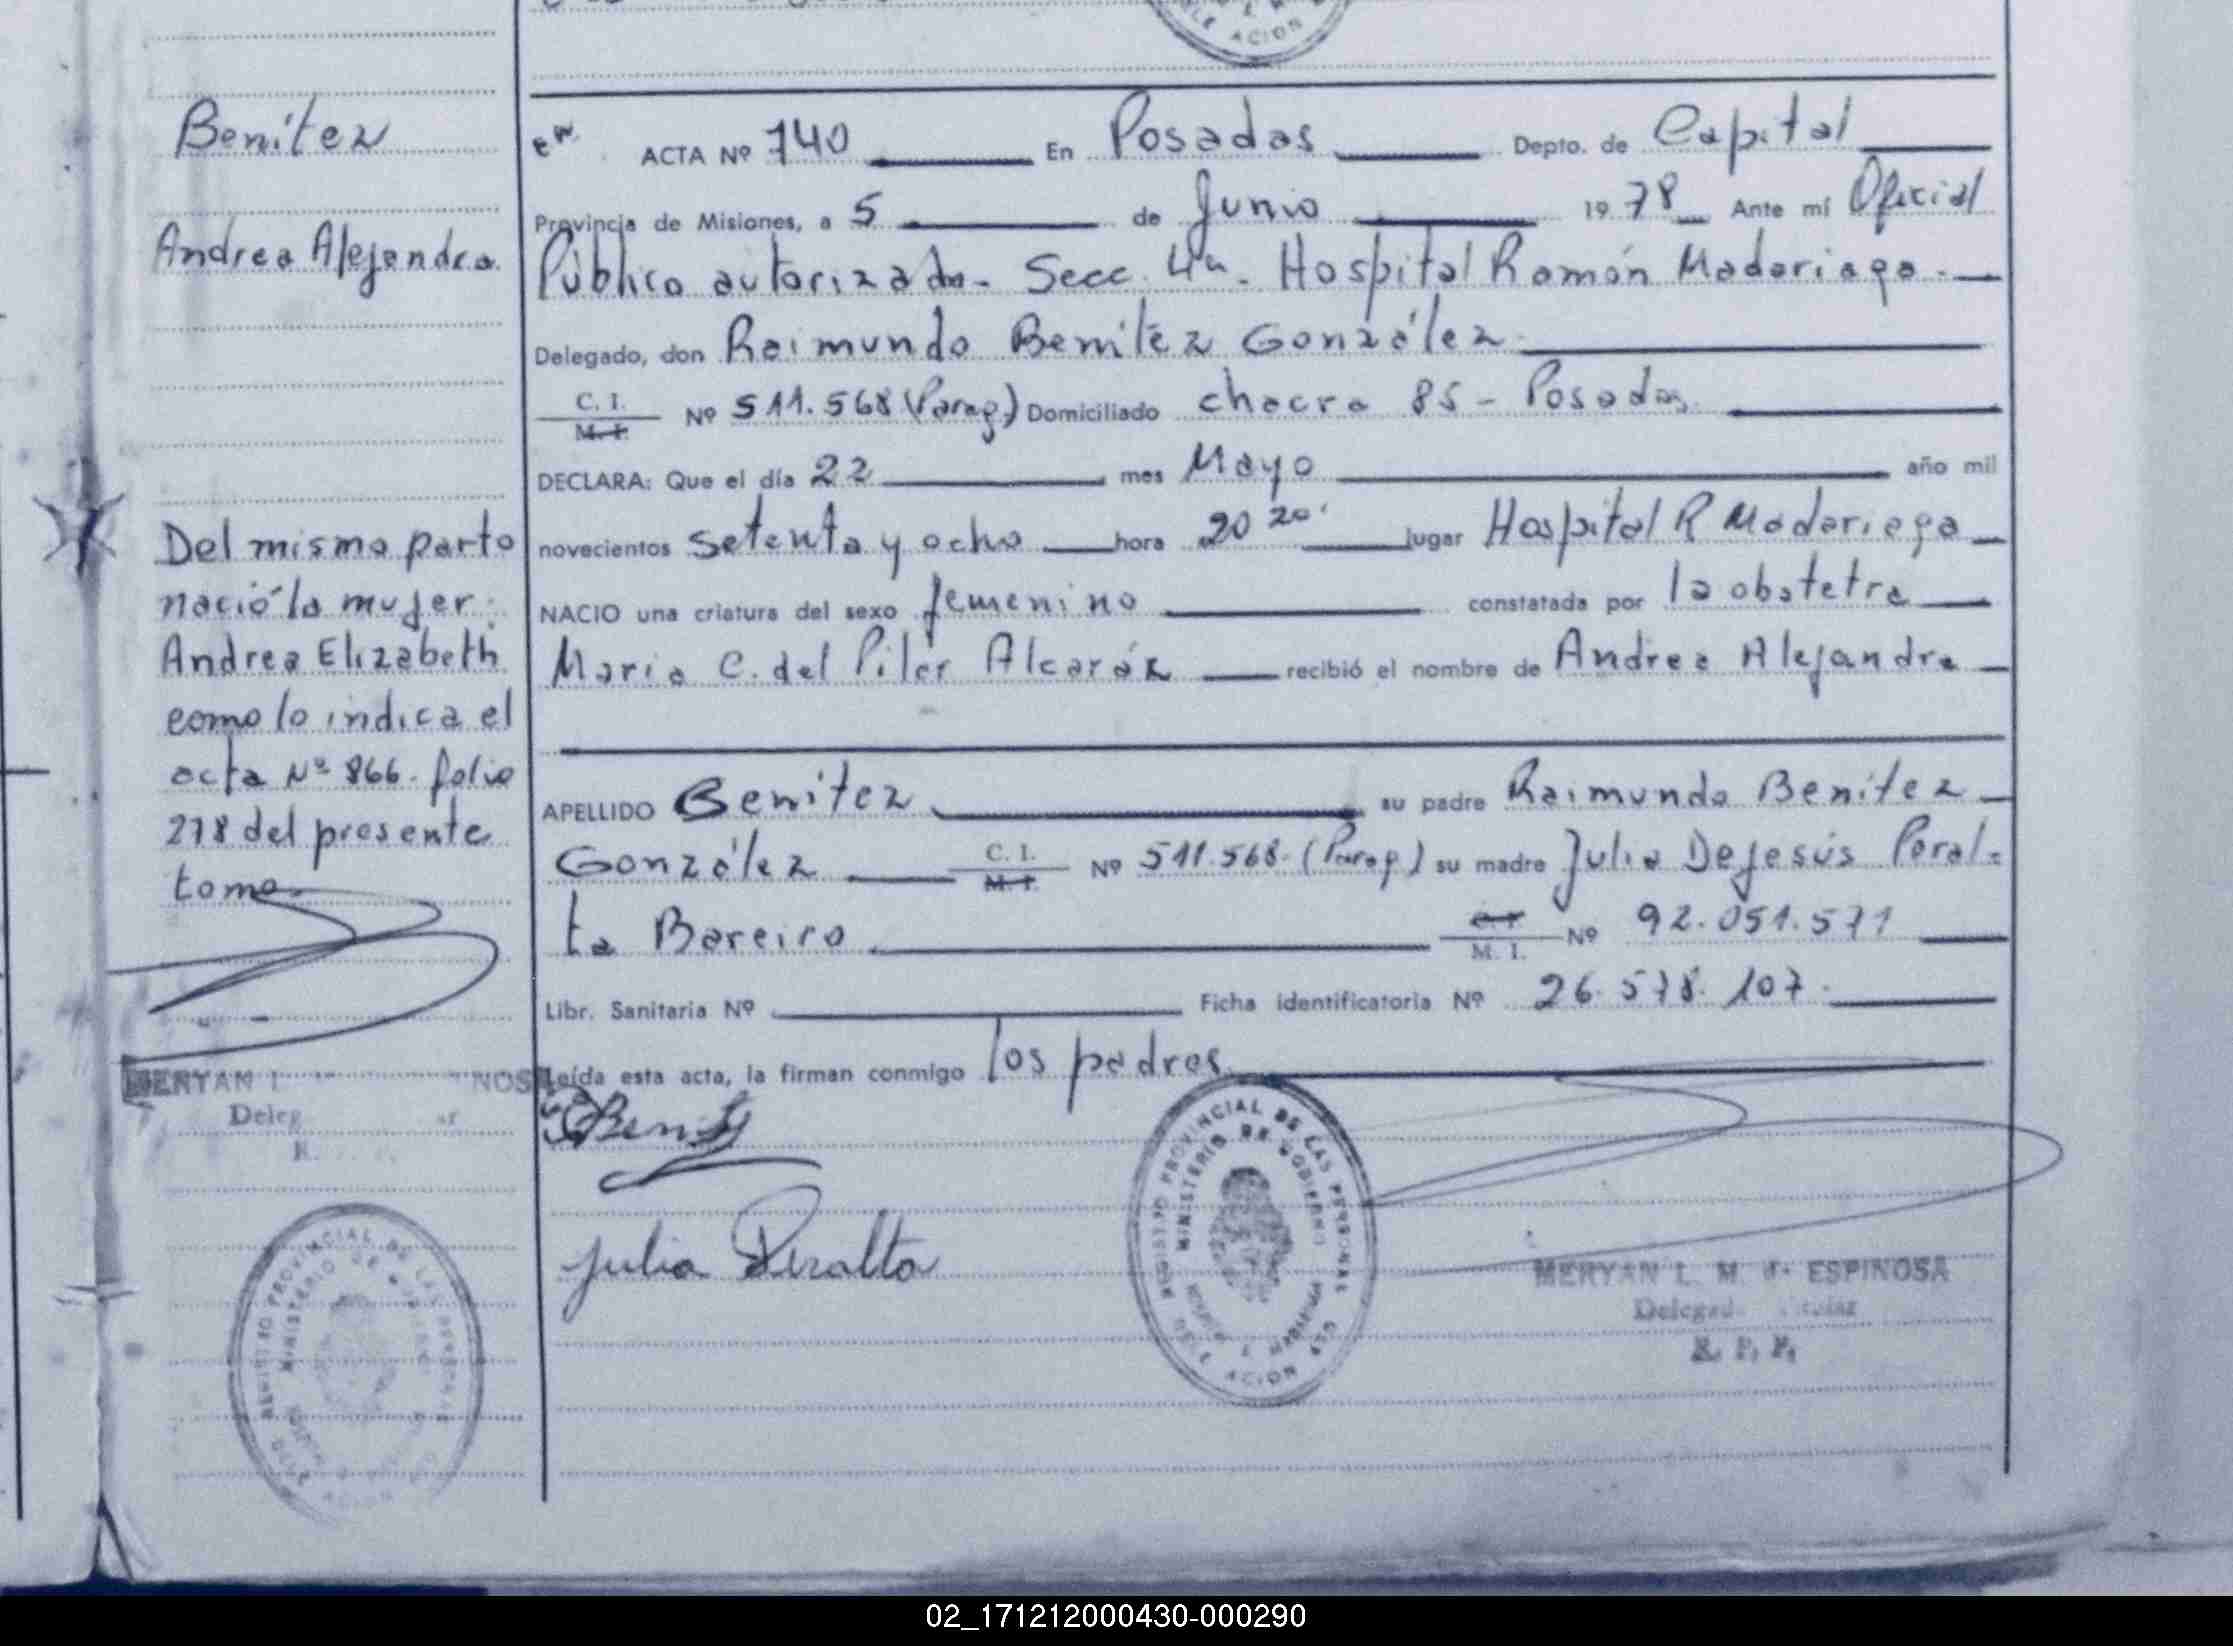 Benítez
Andrea Alejandra.
Del mismo parto
nació la mujer:
Andrea Elizabeth
como lo indica el
acta Nº 866. folio
278 del presente
tomo.
MERYAN L NOS
Deleg
ACTA Nº 740 En Posadas Depto. de Capital
Provincia de Misiones, a 5 de Junio 1978 Ante mí Oficial
Público autorizado - Secc. 4ta - Hospital Ramón Madariaga -
Delegado, don Raimundo Benítez González
C. I. M. I. Nº 511.568 (Parag.) Domiciliado chacra 85 - Posadas
DECLARA: Que el día 22 mes Mayo año mil
novecientos setenta y ocho hora 20 20' lugar Hospital R Madariaga
NACIO una criatura del sexo femenino constatada por la obstetra
María C. del Pilar Alcaráz recibió el nombre de Andrea Alejandra
APELLIDO Benítez su padre Raimundo Benítez
González C. I. M. I. Nº 511.568. (Parag.) su madre Julia DeJesús Peral-
ta Bareiro M. I. Nº 92.051.571
Libr. Sanitaria Nº Ficha identificatoria Nº 26.578.107.
Leída esta acta, la firman conmigo los padres
Julia Peralta
REGISTRO PROVINCIAL DE LAS PERSONAS
MINISTERIO DE GOBIERNO
MERYAN L. M. de ESPINOSA
Delegada Titular
R. P. P.
REGISTRO PROVINCIAL DE LAS PERSONAS
MINISTERIO DE GOBIERNO
02_171212000430-000290